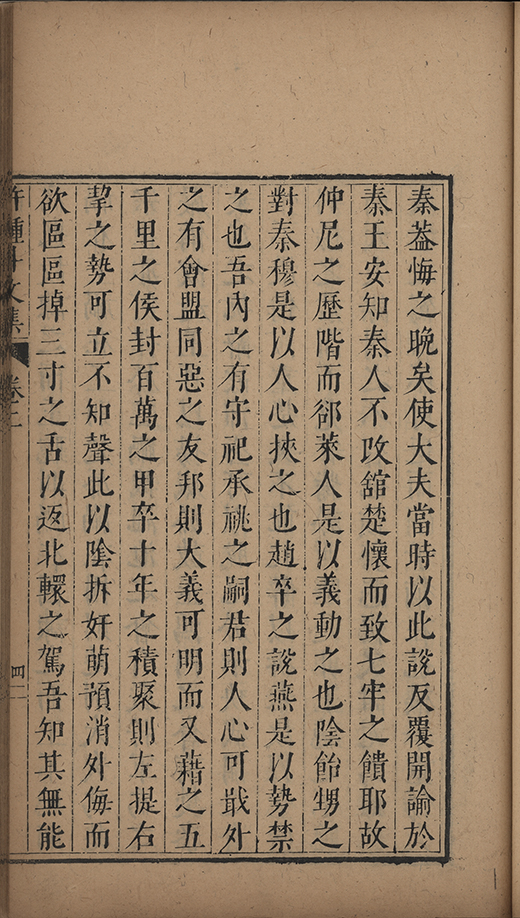 秦葢悔之晚矣使大夫當時以此說反覆開諭於
秦王安知秦人不改舘楚懷而致七牢之饋耶故
仲尼之歷階而郤萊人是以義動之也陰飴甥之
對秦穆是以人心挾之也趙卒之說燕是以勢禁
之也吾內之有守祀承祧之嗣君則人心可戢外
之有會盟同惡之友邦則大義可明而又藉之五
千里之侯封百萬之甲卒十年之積聚則左提右
挈之勢可立不知聲此以陰拆奸萌預消外侮而
欲區區掉三寸之舌以返北轅之駕吾知其無能
許鍾斗文集 卷二 四二